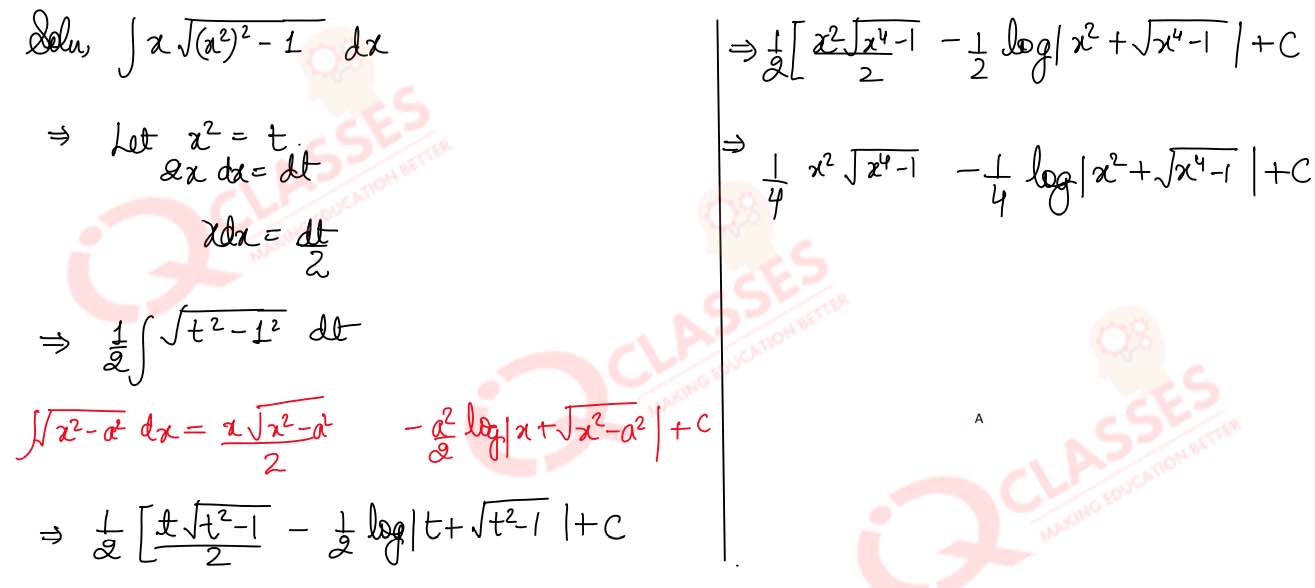 Solu, ∫ x √((x²)² − 1) dx
⇒ Let x² = t.
2x dx = dt
xdx = dt/2
⇒ 1/2 ∫ √(t² − 1²) dt
∫√(x² − a²) dx = x√(x² − a²)/2 − a²/2 log|x + √(x² − a²)| + C
⇒ 1/2 [ t√(t² − 1)/2 − 1/2 log|t + √(t² − 1)| + C
⇒ 1/2 [ x²√(x⁴ − 1)/2 − 1/2 log|x² + √(x⁴ − 1)| + C
⇒ 1/4 x² √(x⁴ − 1) − 1/4 log|x² + √(x⁴ − 1)| + C
A
IQ CLASSES
MAKING EDUCATION BETTER
IQ CLASSES
MAKING EDUCATION BETTER
IQ CLASSES
MAKING EDUCATION BETTER